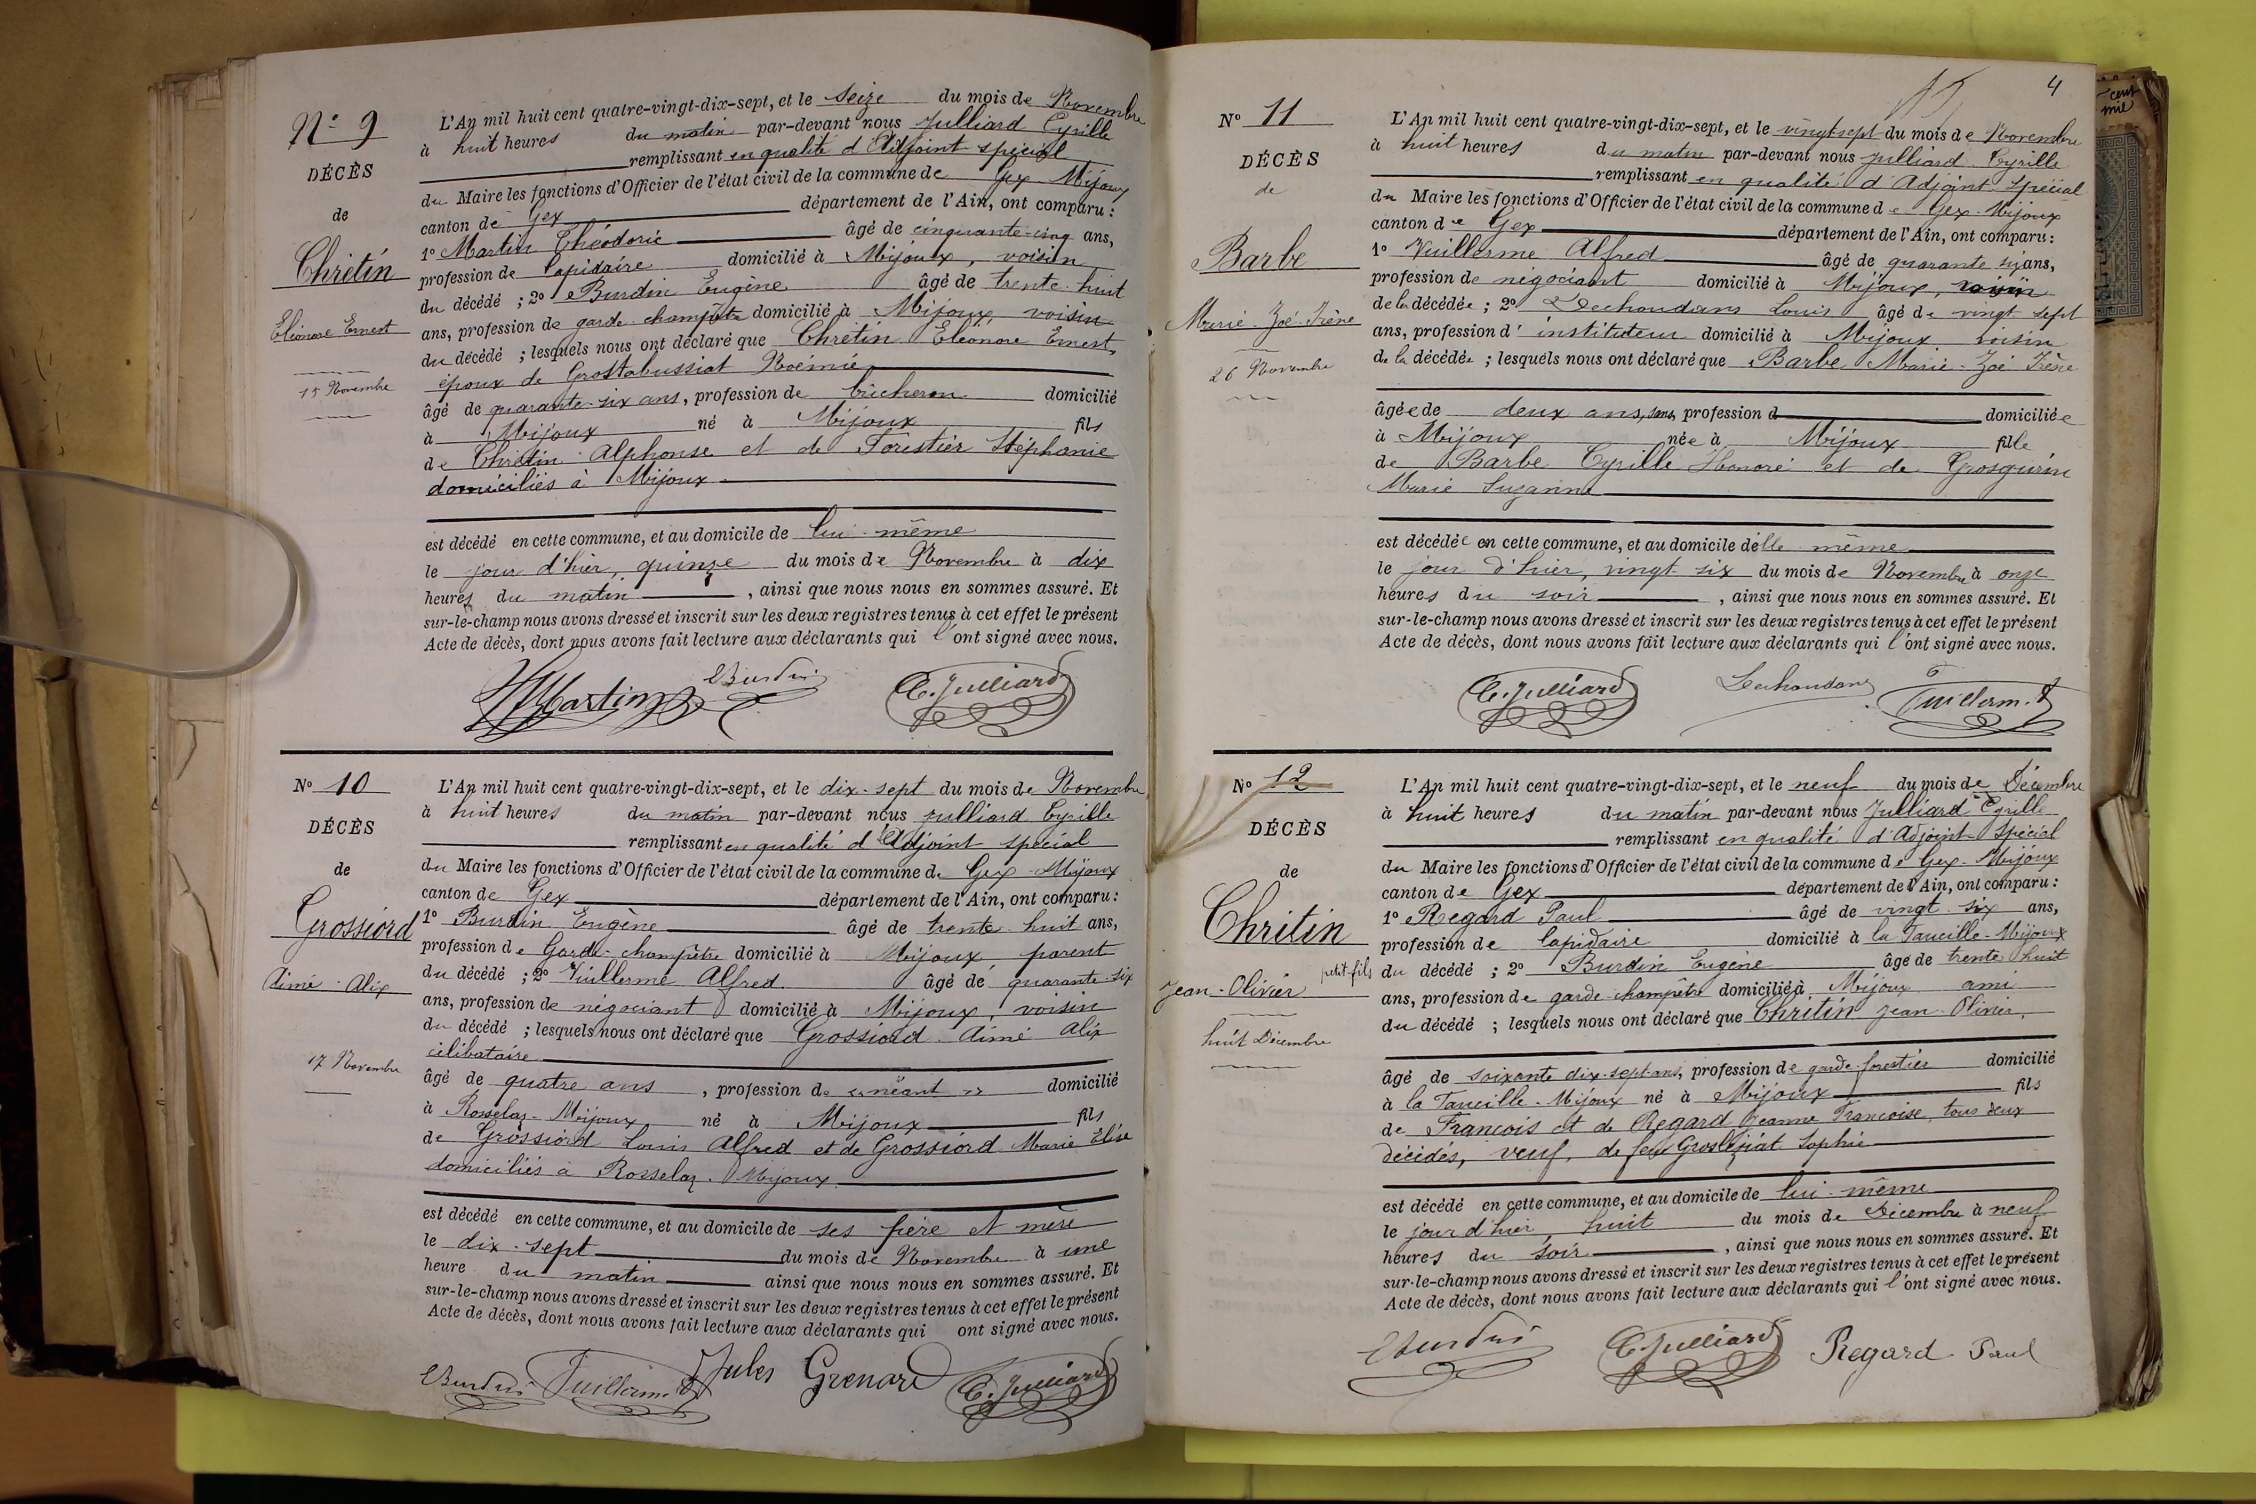 N° 9
DÉCÈS
de
Chrétin
Eléonore Ernest
15 Novembre
L'An mil huit cent quatre-vingt-dix-sept, et le seize du mois de Novembre
à huit heures du matin par-devant nous Julliard Cyrille
remplissant en qualité d'Adjoint spécial
du Maire les fonctions d'Officier de l'état civil de la commune de Gex-Mijoux
canton de Gex département de l'Ain, ont comparu :
1° Martin Théodorie âgé de cinquante-cinq ans,
profession de lapidaire domicilié à Mijoux, voisin
du décédé ; 2° Burdin Eugène âgé de trente-huit
ans, profession de garde-champêtre domicilié à Mijoux, voisin
du décédé ; lesquels nous ont déclaré que Chrétin Eléonore Ernest,
époux de Noémie
âgé de quarante-six ans, profession de bûcheron domicilié
à Mijoux né à Mijoux fils
de Chrétin Alphonse et de Forestier Stéphanie
domiciliés à Mijoux
est décédé en cette commune, et au domicile de lui-même
le jour d'hier, quinze du mois de Novembre à dix
heures du matin, ainsi que nous nous en sommes assuré. Et
sur-le-champ nous avons dressé et inscrit sur les deux registres tenus à cet effet le présent
Acte de décès, dont nous avons fait lecture aux déclarants qui l'ont signé avec nous.
Martin Burdin C. Julliard
N° 10
DÉCÈS
de
Grossiord
Aimé Alix
17 Novembre
L'An mil huit cent quatre-vingt-dix-sept, et le dix-sept du mois de Novembre
à huit heures du matin par-devant nous Julliard Cyrille
remplissant en qualité d'Adjoint spécial
du Maire les fonctions d'Officier de l'état civil de la commune de Gex-Mijoux
canton de Gex département de l'Ain, ont comparu :
1° Burdin Eugène âgé de trente-huit ans,
profession de Garde-champêtre domicilié à Mijoux parent
du décédé ; 2° Vuillerme Alfred âgé de quarante-six
ans, profession de négociant domicilié à Mijoux, voisin
du décédé ; lesquels nous ont déclaré que Grossiord Aimé Alix
célibataire
âgé de quatre ans, profession de « néant » domicilié
à Rosselaz-Mijoux né à Mijoux fils
de Grossiord Louis Alfred et de Grossiord Marie Elise
domiciliés à Rosselaz-Mijoux
est décédé en cette commune, et au domicile de ses père et mère
le dix-sept du mois de Novembre à une
heure du matin ainsi que nous nous en sommes assuré. Et
sur-le-champ nous avons dressé et inscrit sur les deux registres tenus à cet effet le présent
Acte de décès, dont nous avons fait lecture aux déclarants qui ont signé avec nous.
Burdin Vuillerme Jules Grenard C. Julliard
4
cent
mil
N° 11
DÉCÈS
de
Barbe
Marie-Zoé-Irène
26 Novembre
L'An mil huit cent quatre-vingt-dix-sept, et le vingt-sept du mois de Novembre
à huit heures du matin par-devant nous Julliard Cyrille
remplissant en qualité d'Adjoint spécial
du Maire les fonctions d'Officier de l'état civil de la commune de Gex-Mijoux
canton de Gex département de l'Ain, ont comparu :
1° Vuillerme Alfred âgé de quarante six ans,
profession de négociant domicilié à Mijoux, voisin
de la décédée ; 2° Dechoudans Louis âgé de vingt sept
ans, profession d'instituteur domicilié à Mijoux voisin
de la décédée ; lesquels nous ont déclaré que Barbe Marie-Zoé Irène
âgée de deux ans, sans profession d domiciliée
à Mijoux née à Mijoux fille
de Barbe Cyrille Honoré et de Grosgurin
Marie Suzanne
est décédée en cette commune, et au domicile d'elle-même
le jour d'hier, vingt-six du mois de Novembre à onze
heures du soir, ainsi que nous nous en sommes assuré. Et
sur-le-champ nous avons dressé et inscrit sur les deux registres tenus à cet effet le présent
Acte de décès, dont nous avons fait lecture aux déclarants qui l'ont signé avec nous.
C. Julliard Dechoudans Vuillerme
N° 12
DÉCÈS
de
Chrétin
Jean-Olivier
huit Décembre
L'An mil huit cent quatre-vingt-dix-sept, et le neuf du mois de Décembre
à huit heures du matin par-devant nous Julliard Cyrille
remplissant en qualité d'Adjoint spécial
du Maire les fonctions d'Officier de l'état civil de la commune de Gex-Mijoux
canton de Gex département de l'Ain, ont comparu :
1° Regard Paul âgé de vingt-six ans,
profession de lapidaire domicilié à la Faucille-Mijoux
petit-fils du décédé ; 2° Burdin Eugène âgé de trente huit
ans, profession de garde-champêtre domicilié à Mijoux ami
du décédé ; lesquels nous ont déclaré que Chrétin Jean-Olivier,
âgé de soixante dix-sept ans, profession de garde-forestier domicilié
à la Faucille-Mijoux né à Mijoux fils
de François et de Regard Jeanne Françoise, tous deux
décédés, veuf, de feue Sophie
est décédé en cette commune, et au domicile de lui-même
le jour d'hier, huit du mois de Décembre à neuf
heures du soir, ainsi que nous nous en sommes assuré. Et
sur-le-champ nous avons dressé et inscrit sur les deux registres tenus à cet effet le présent
Acte de décès, dont nous avons fait lecture aux déclarants qui l'ont signé avec nous.
Burdin C. Julliard Regard Paul